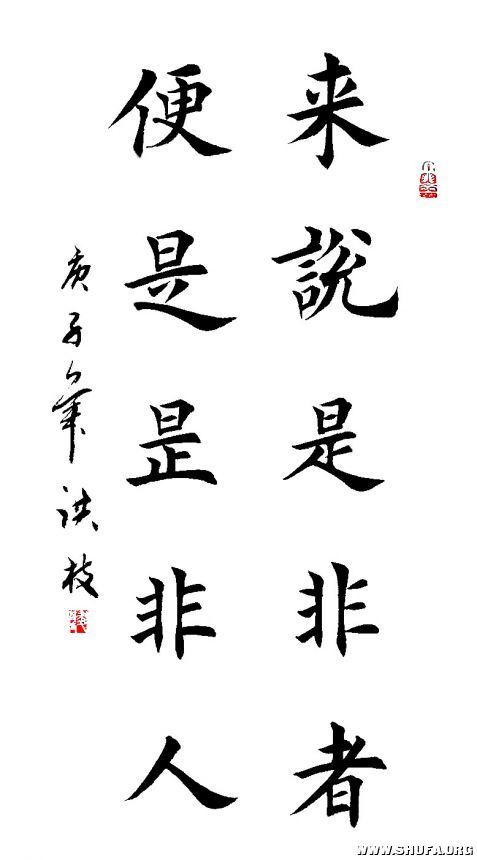 来說是非者
便是昰非人
庚子年洪枝
WWW.SHUFA.ORG